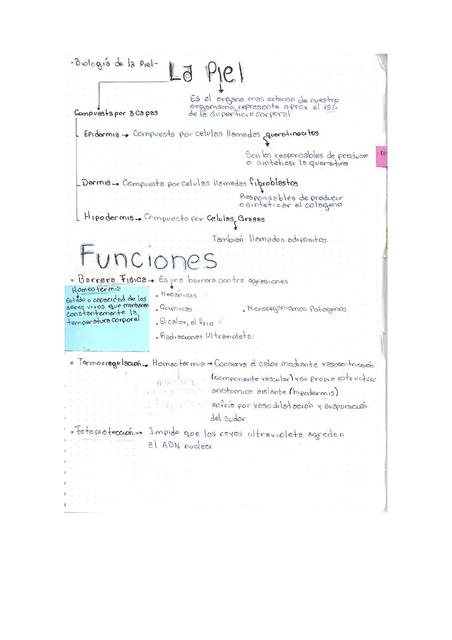 -Biología de la Piel-
La Piel
Es el organo mas extenso de nuestro
organismo, representa aprox el 15%
de la superficie corporal
Compuesta por 3 Capas
Epidermis → Compuesta por celulas llamadas queratinocitos
Son los responsables de producir
o sintetizar la queratina
-Dermis → Compuesta por Celulas llamadas fibroblastos
Responsables de producir
o sintetizar el colageno
Hipodermis → Compuesto por Celulas Grasas
Tambien llamados adipositos
Funciones
Barrera Fisica → Es una barrera contra agresiones
Homeotermia
Estado o capacidad de los
seres vivos que mantienen
constantemente la
temperatura corporal
• Mecanicas
• Quimicas
• Microorganismos Patogenos
• El calor, el frio
• Radiaciones Ultravioleta
Termorregulación → Homeotermia → Conserva el calor mediante vasoconstriccion
(componente vascular) y su propia estructura
anatomica aislante (hipodermis)
enfrio por vasodilatación y evaporación
del sudor
Fotoprotección → Impide que los rayos ultravioleta agreden
al ADN nuclear